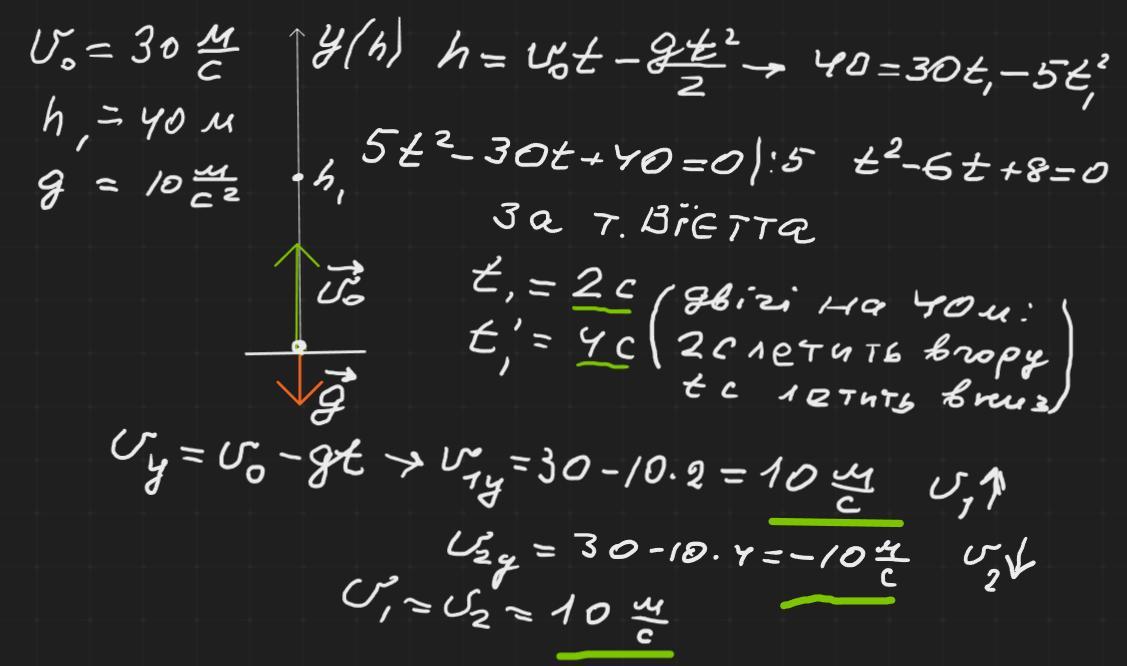 v₀ = 30 м/с
h₁ = 40 м
g = 10 м/с²
y(h)
h₁
v⃗₀
g⃗
h = v₀t − gt²/2 → 40 = 30t₁ − 5t₁²
5t² − 30t + 40 = 0 |:5 t² − 6t + 8 = 0
За т. Вїєтта
t₁ = 2 с
t₁' = 4 с
(двігі на 40 м:
2 с летить вгору
t с летить вниз)
v_y = v₀ − gt → v₁y = 30 − 10·2 = 10 м/с v₁↑
v₂y = 30 − 10·4 = −10 м/с v₂↓
v₁ = v₂ = 10 м/с